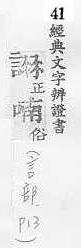 41
經典文字辨證書
正
喃俗
(言部
P13)